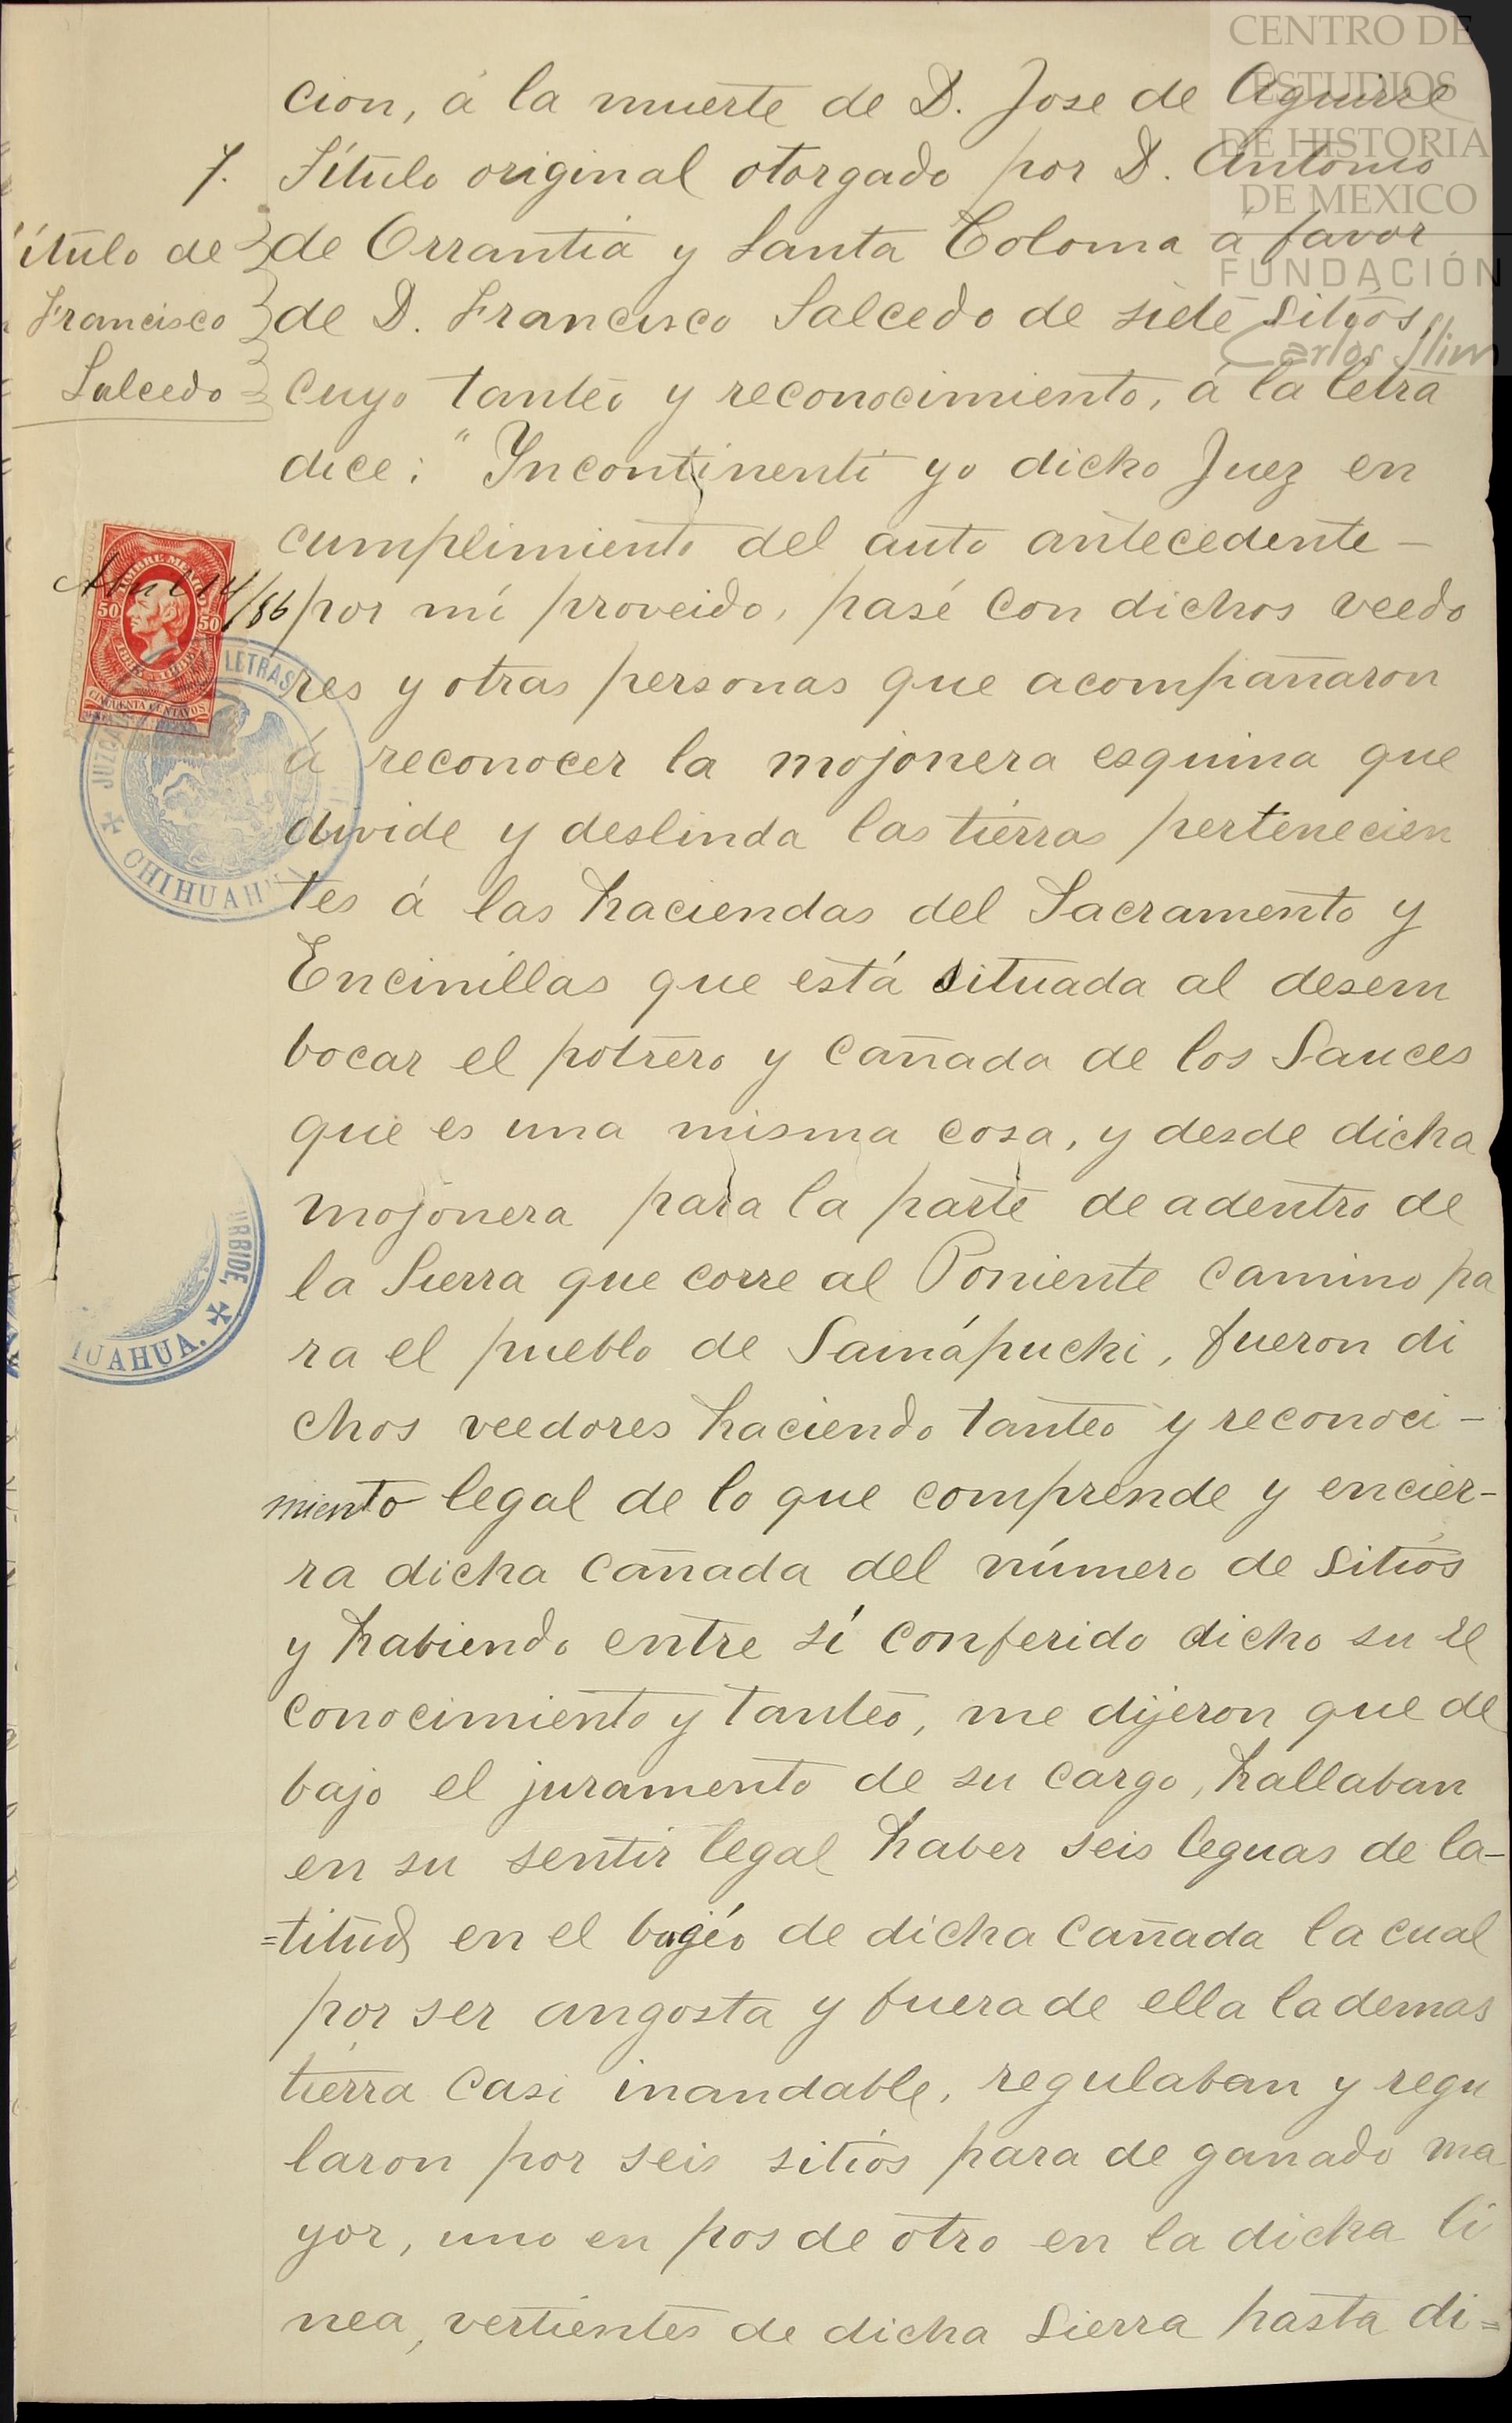 CENTRO DE
ESTUDIOS
DE HISTORIA
DE MEXICO
FUNDACIÓN
Carlos Slim
cion, á la muerte de D. Jose de Aguirre
7. Título original otorgado por D. Antonio
de Orrantia y Santa Coloma á favor
de D. Francisco Salcedo de siete sitios,
cuyo tanteo y reconocimiento, á la letra
dice: "Yncontinenti yo dicho Juez en
cumplimiento del auto antecedente —
por mí proveido, pasé con dichos veedo
res y otras personas que acompañaron
á reconocer la mojonera esquina que
divide y deslinda las tierras pertenecien
tes á las haciendas del Sacramento y
Encinillas que está situada al desem
bocar el potrero y cañada de los Sauces
que es una misma cosa, y desde dicha
mojonera para la parte de adentro de
la Sierra que corre al Poniente camino pa
ra el pueblo de Sainápuchi, fueron di
chos veedores haciendo tanteo y reconoci-
miento legal de lo que comprende y encier-
ra dicha cañada del número de sitios
y habiendo entre sí conferido dicho su re
conocimiento y tanteo, me dijeron que de
bajo el juramento de su cargo, hallaban
en su sentir legal haber seis leguas de la-
=titud en el bagío de dicha cañada la cual
por ser angosta y fuera de ella la demas
tierra casi inandable, regulaban y regu
laron por seis sitios para de ganado ma
yor, uno en pos de otro en la dicha li
nea, vertientes de dicha Sierra hasta di=
ítulo de
Francisco
Salcedo
Abril 14/86
50 50
CINCUENTA CENTAVOS
JUZGA LETRAS
CHIHUAHUA
URBIDE,
IUAHUA.